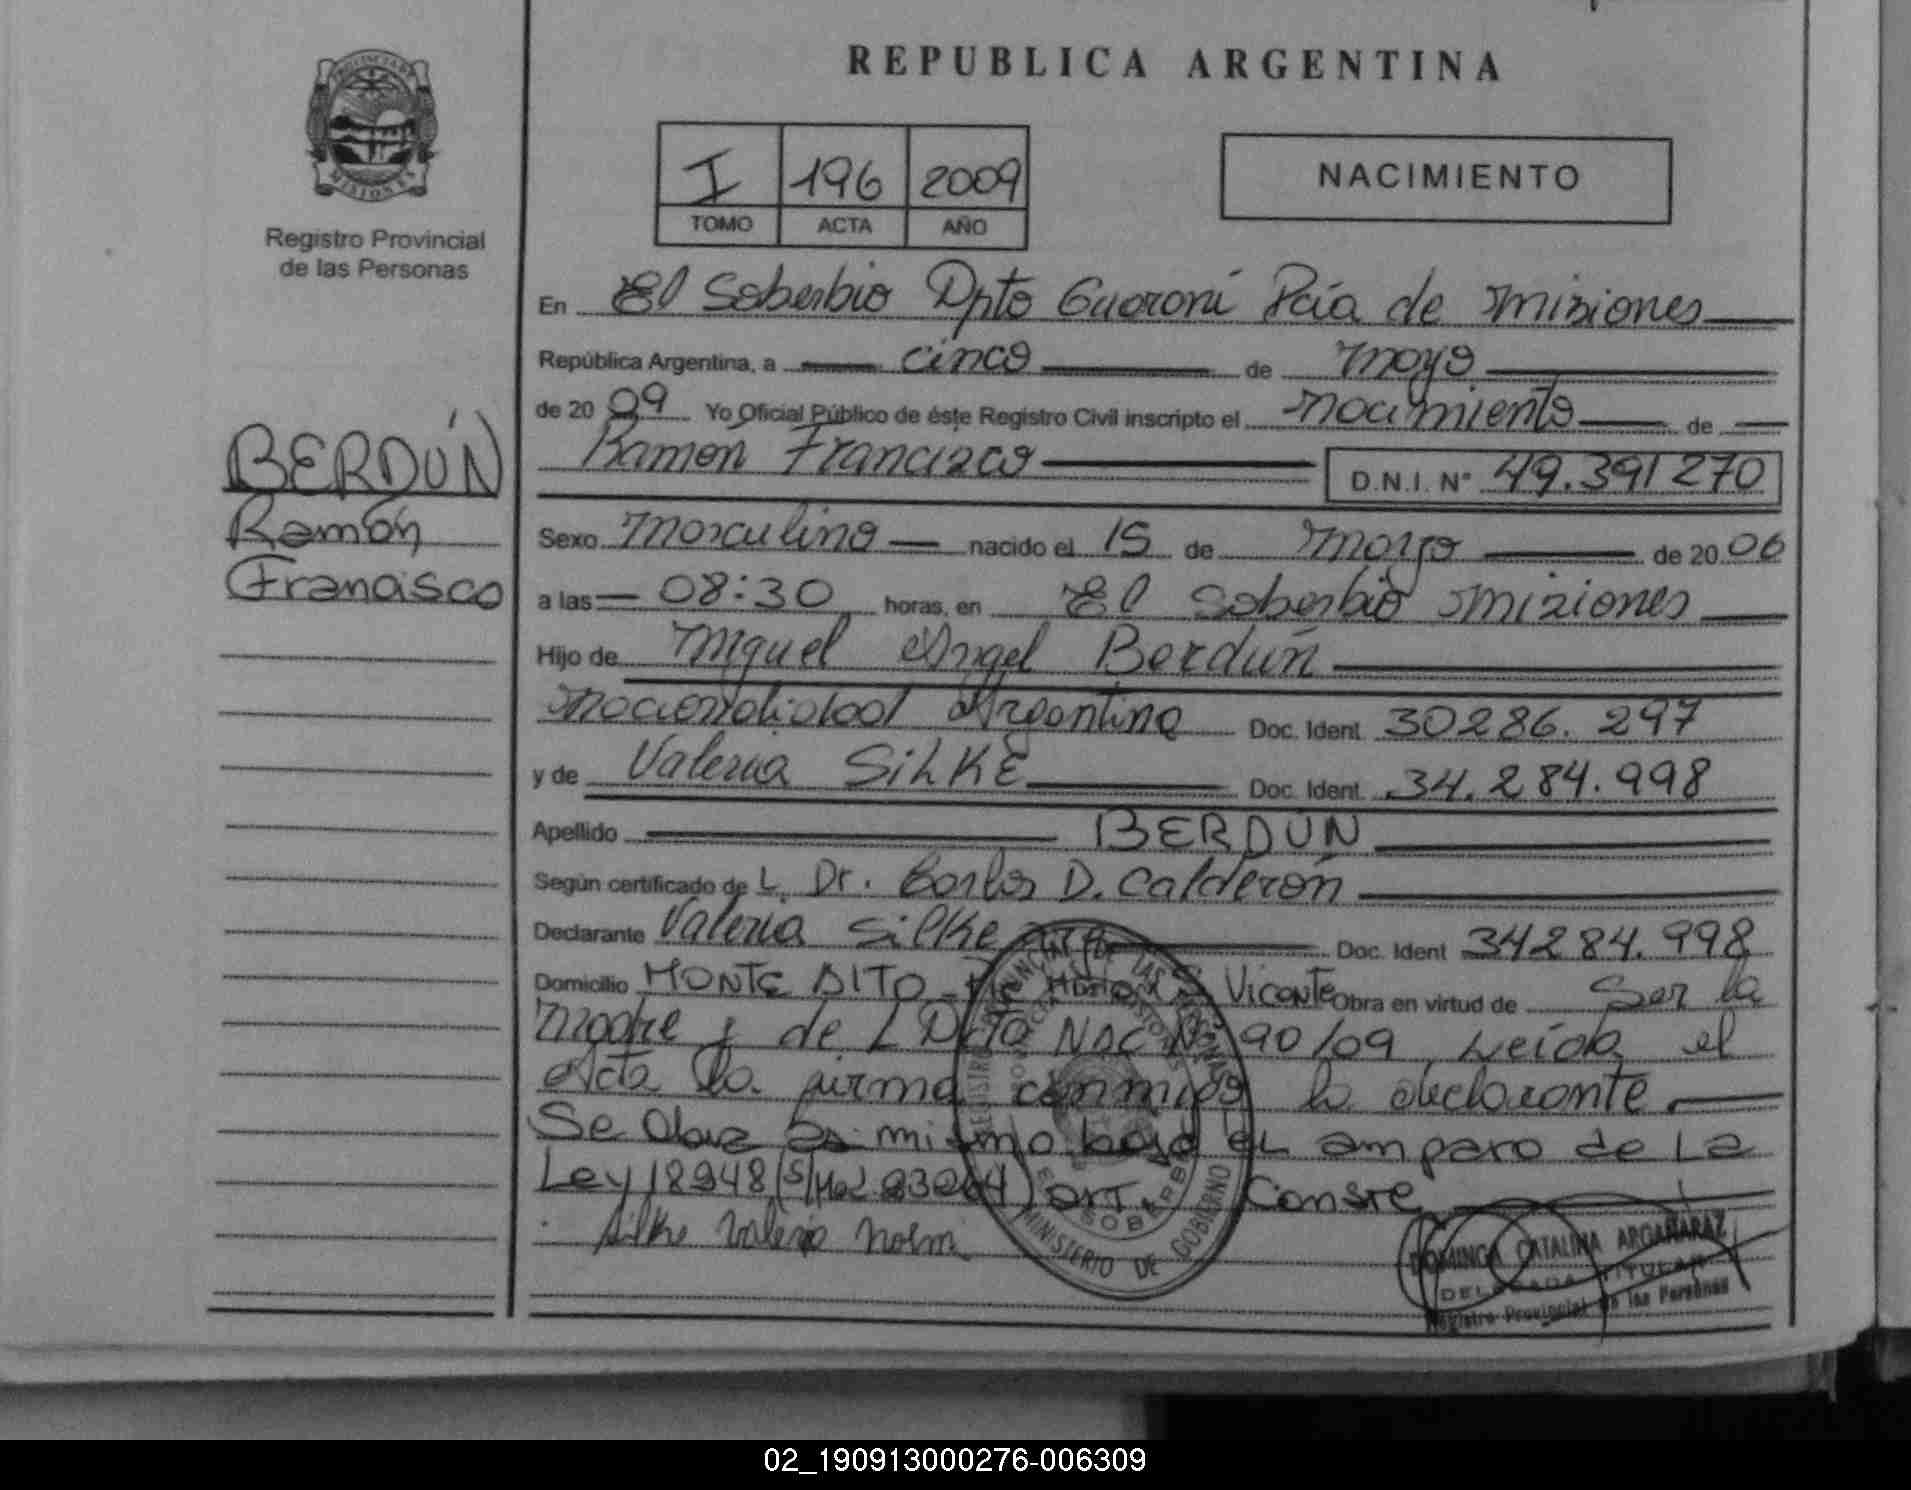 PROVINCIA DE
MISIONES
Registro Provincial
de las Personas
BERDÚN
Ramón
Francisco
REPUBLICA ARGENTINA
I 196 2009
TOMO ACTA AÑO
NACIMIENTO
En El Soberbio Dpto Guaraní Pcia de Misiones
República Argentina, a cinco de mayo
de 20 09 Yo Oficial Público de éste Registro Civil inscripto el nacimiento de
Ramon Francisco D.N.I. N° 49.391270
Sexo Masculino nacido el 15 de Marzo de 20 06
a las 08:30 horas, en El Soberbio Misiones
Hijo de Miguel Angel Berdún
Nacionalidad Argentina Doc. Ident. 30286.297
y de Valeria SILKE Doc. Ident. 34.284.998
Apellido BERDÚN
Según certificado de L. Dr. Carlos D. Calderón
Declarante Valeria Silke Doc. Ident 34284.998
Domicilio MONTE Vicente Obra en virtud de Ser la
Madre y de L 90/09 Leída el
Acta la firma conmigo la declarante
Se mismo bajo EL amparo de La
Ley Conste
Silke Valeria
MINISTERIO DE GOBIERNO
DOMINGA CATALINA ARGAÑARAZ
DELEGADA TITULAR
Registro Provincial de las Personas
02_190913000276-006309